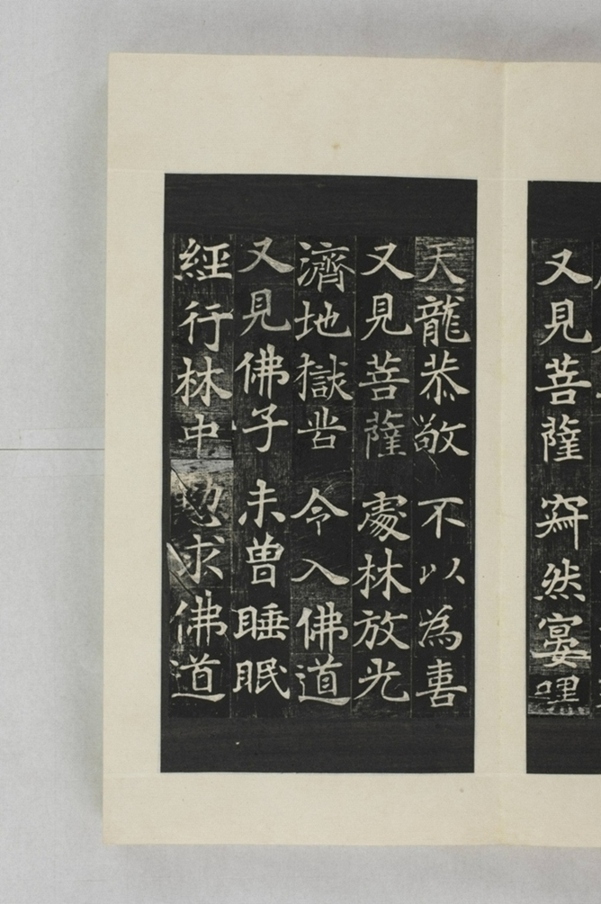 又見菩薩 寂然宴嘿
天龍恭敬 不以為喜
又見菩薩 處林放光
濟地獄苦 令入佛道
又見佛子 未曾睡眠
經行林中 懃求佛道